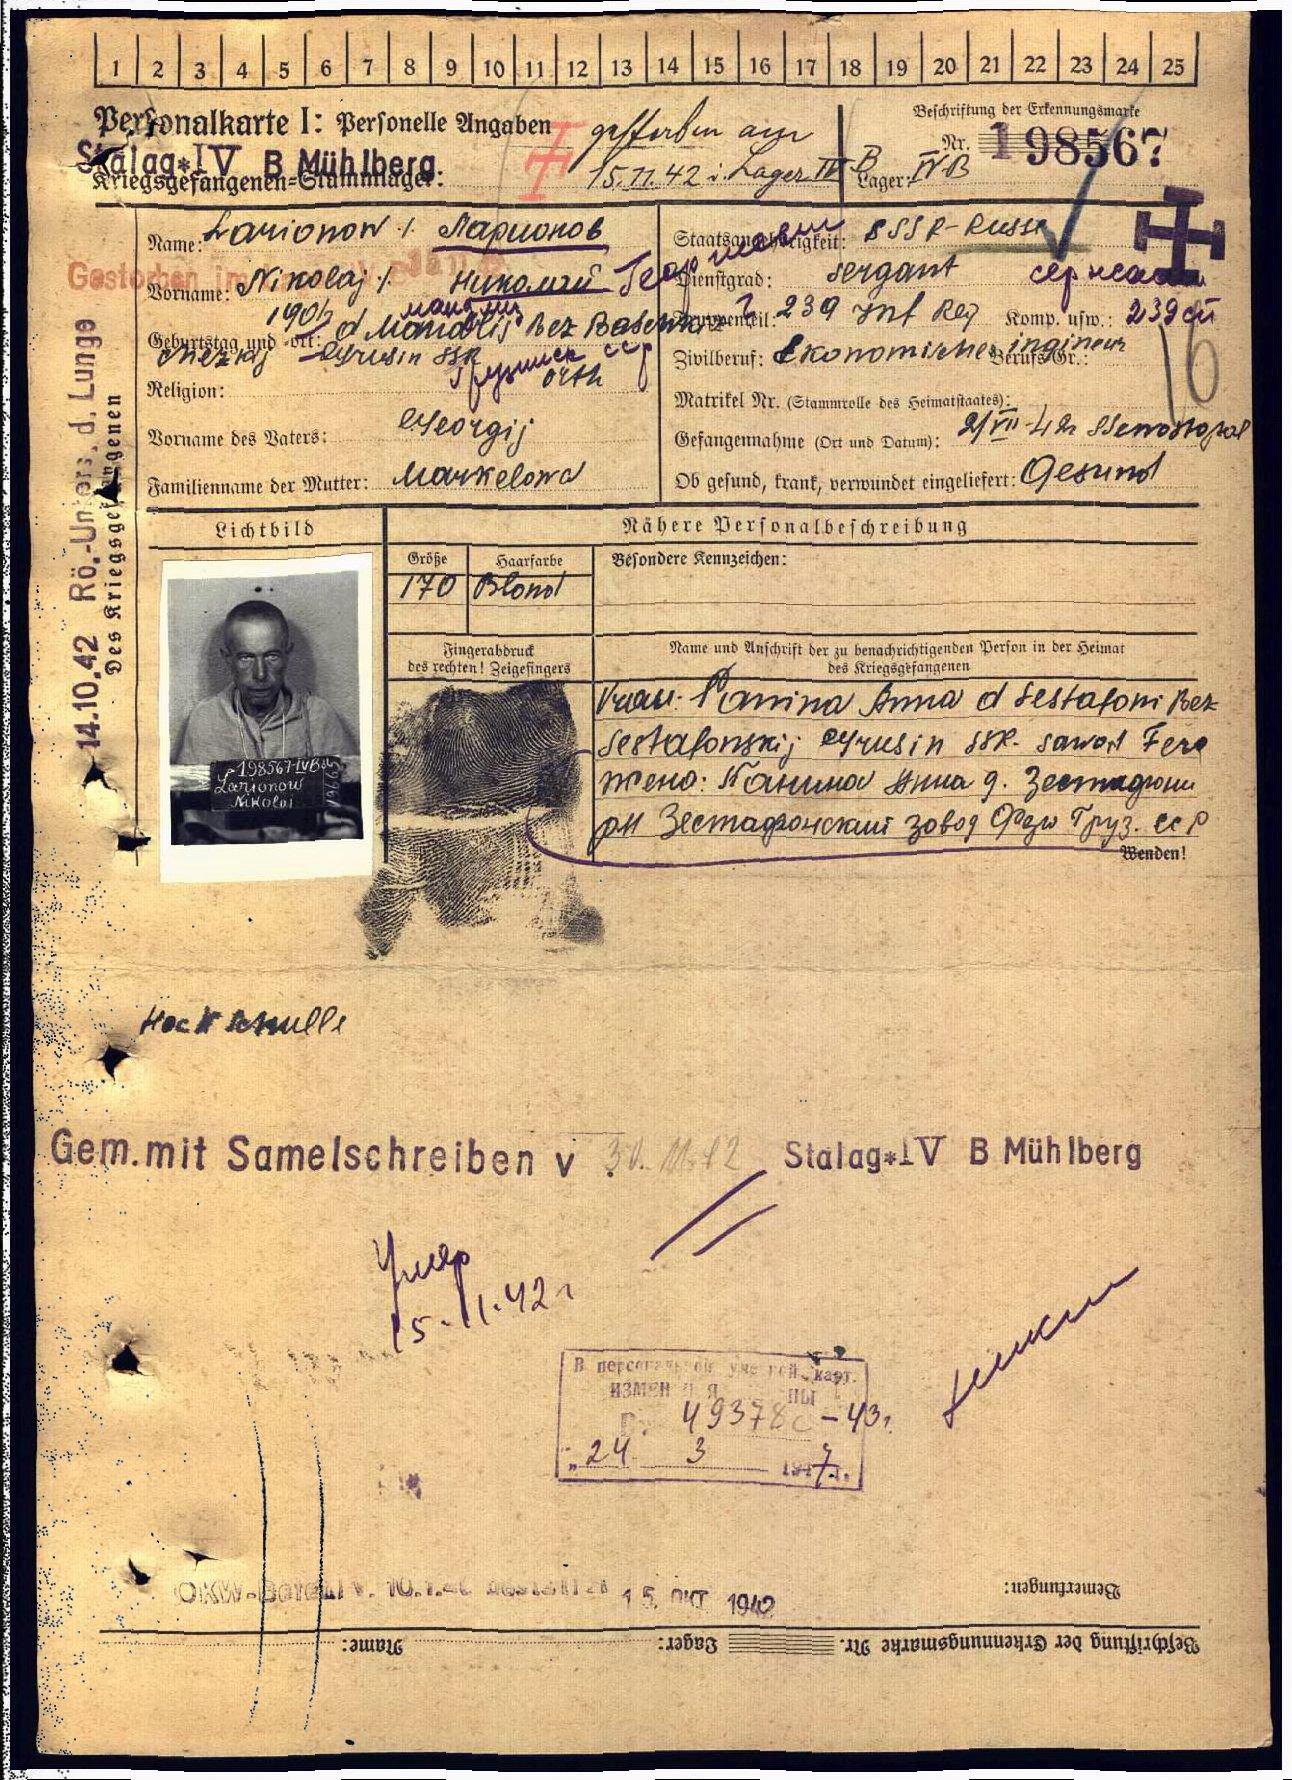 1 2 3 4 5 6 7 8 9 10 11 12 13 14 15 16 17 18 19 20 21 22 23 24 25
Personalkarte I: Personelle Angaben
gestorben am
15.11.42 i. Lager IV B
Beschriftung der Erkennungsmarke
Nr. 198567
Stalag*IV B Mühlberg
Kriegsgefangenen-Stammlager:
Lager: IV B
Name: Larionow /. Ларионов
Gestorben im
Vorname: Nikolaj /. Николай Георгиевич
Geburtstag und -ort: 1906 d Mandlis Bez Basch
Grusin SSR
Грузинск ССР
Religion: orth
Vorname des Vaters: Georgij
Familienname der Mutter: Markelowa
Staatsangehörigkeit: SSSR-Russe
Dienstgrad: Sergant сержант
Truppenteil: 239 Inf Reg Komp. usw.: 239 сп
Zivilberuf: Ekonomischer ingineur Berufs-Gr.:
Matrikel Nr. (Stammrolle des Heimatstaates):
Gefangennahme (Ort und Datum): 2/VII-42 Ssewostopol
Ob gesund, krank, verwundet eingeliefert: Gesund
16
14.10.42 Rö.-Unters. d. Lunge
Des Kriegsgefangenen
Lichtbild
Nähere Personalbeschreibung
Größe
170
Haarfarbe
Blond
Besondere Kennzeichen:
Fingerabdruck
des rechten! Zeigefingers
Name und Anschrift der zu benachrichtigenden Person in der Heimat
des Kriegsgefangenen
Frau: Panina Anna d Sestafoni Bez
Sestafonskij Grusin SSR. sawod Fero
жена: Панина Анна д. Зестафони
рн Зестафонский завод Феро Груз. ССР
Wenden!
198567 IV B
Larionow
Nikolai
Hochschulle
Gem. mit Samelschreiben v 30.11.42 Stalag*IV B Mühlberg
Умер
15.11.42 г
В персональной учетной карт.
ИЗМЕНЕНИЯ
49378с-43г.
"24 3 1947 г.
OKW-Befehl v. 15. OKT 1942
Bemerkungen:
Beschriftung der Erkennungsmarke Nr. Lager: Name: